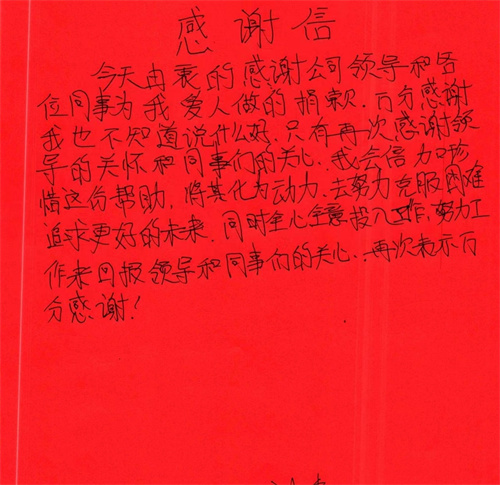 感谢信
今天由衷的感谢公司领导和各
位同事为我爱人做的捐款.万分感谢
我也不知道说什么好.只有再次感谢领
导的关怀和同事们的关心.我会倍加珍
惜这份帮助,将其化为动力.去努力克服困难
追求更好的未来.同时全心全意投入工作,努力工
作来回报领导和同事们的关心.再次表示万
分感谢!